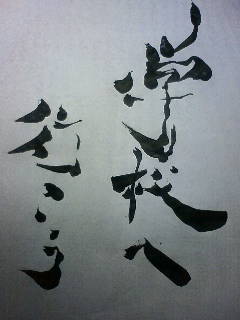 学校へ
行こう